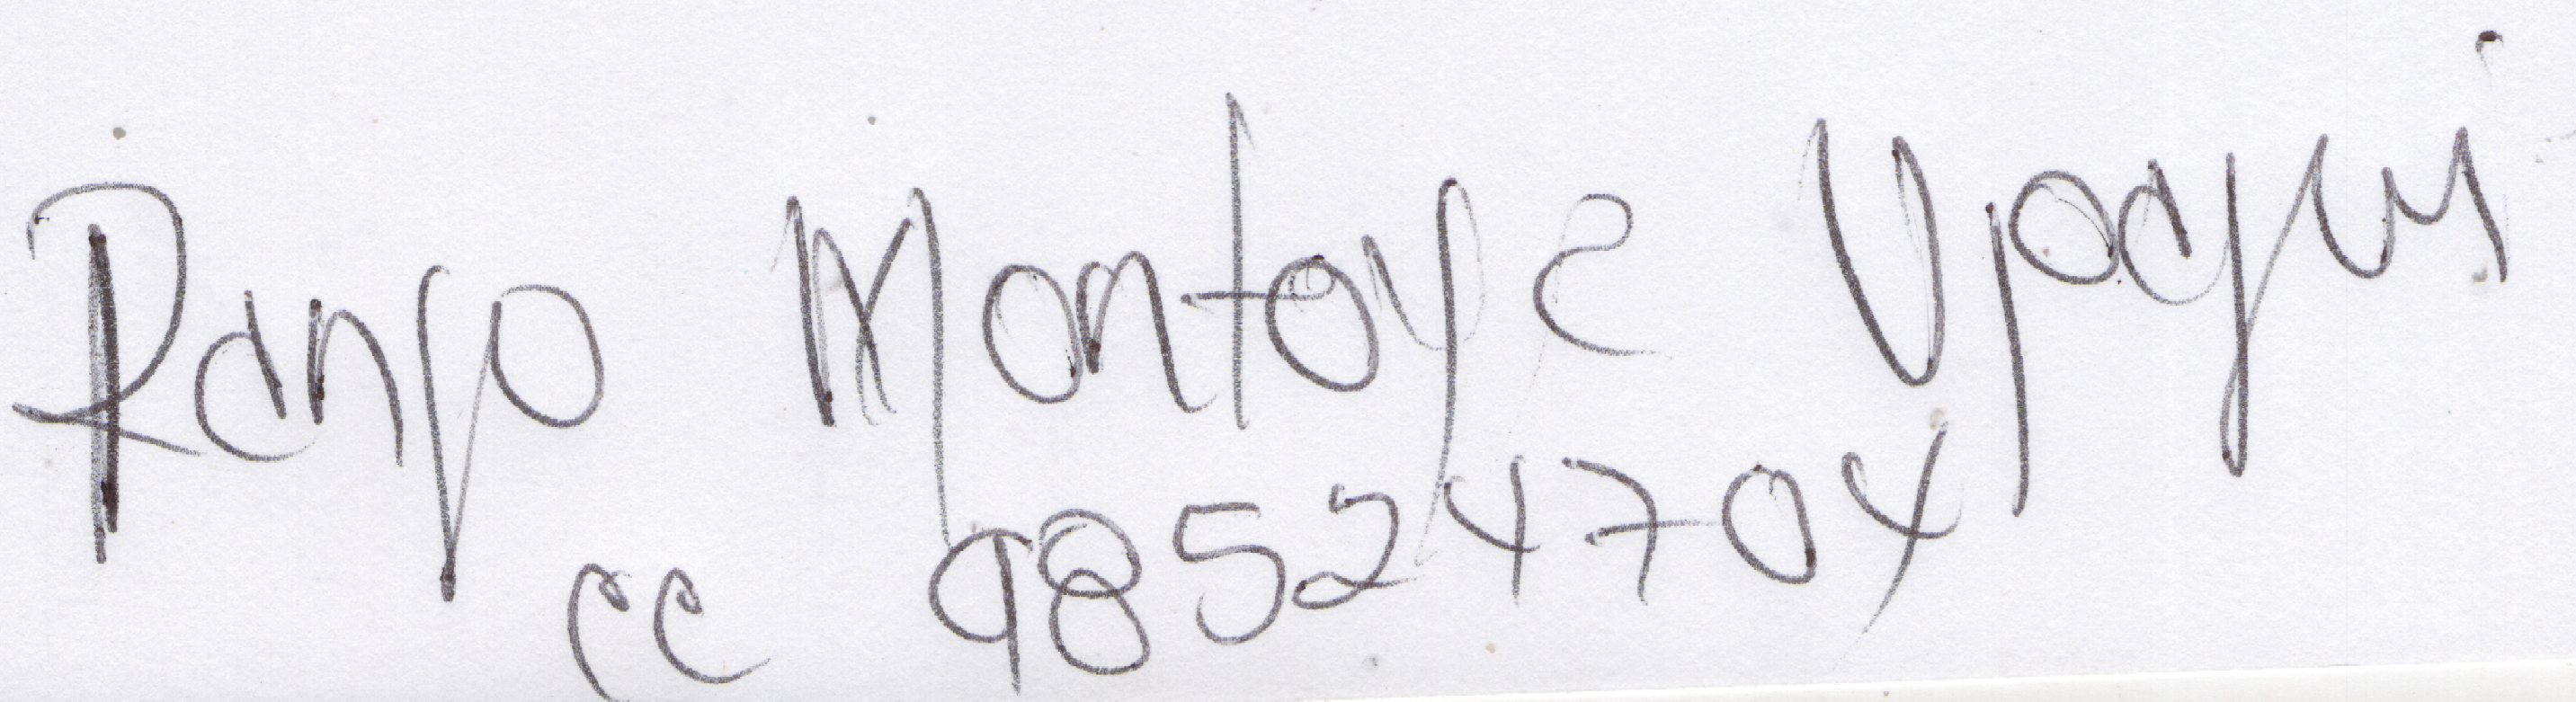 Ramjo Montoya Upegui
cc 98524704